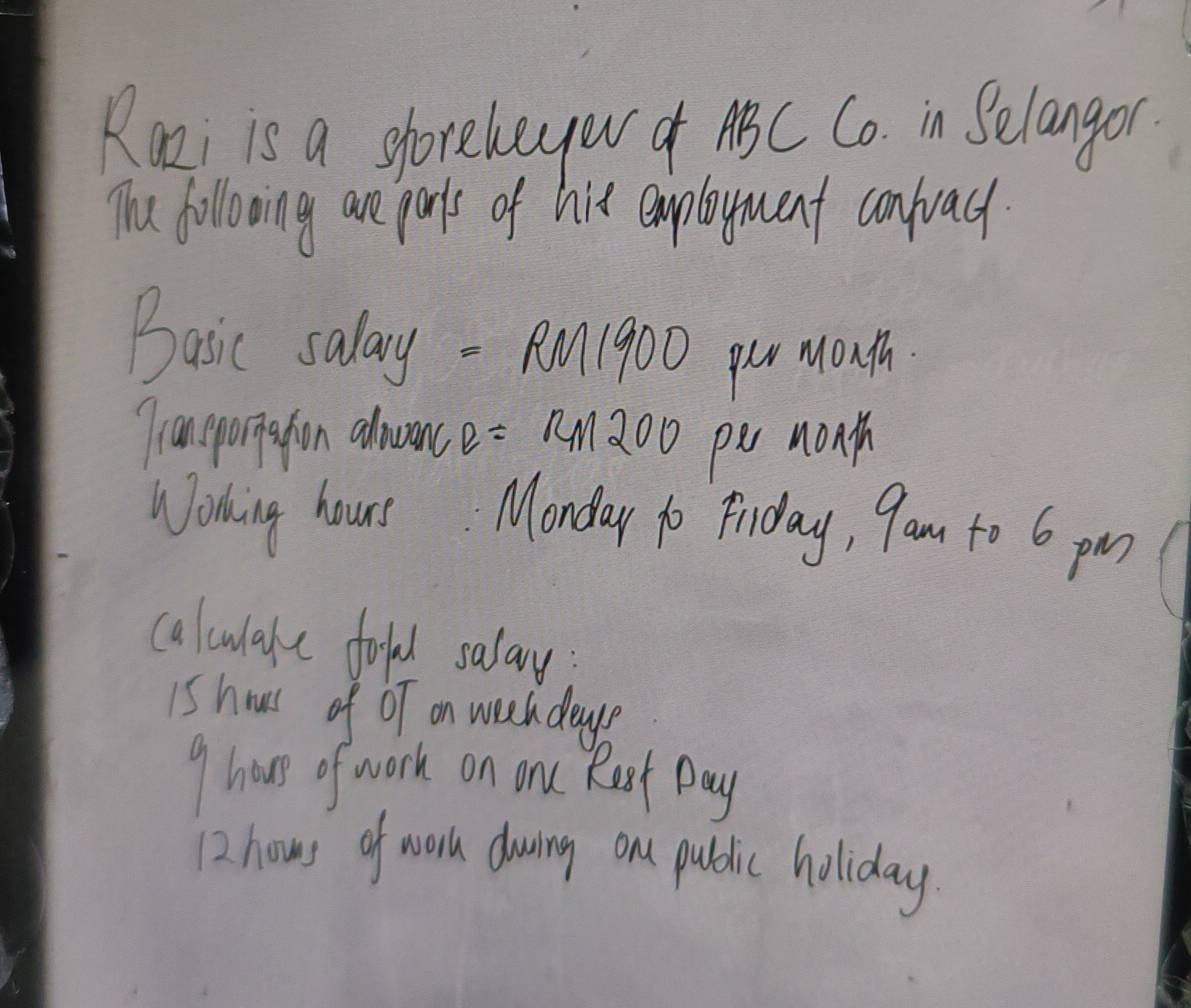 Razi is a storekeeper at ABC Co. in Selangor.
The following are parts of his employment contract.
Basic salary = RM1900 per month.
Transportation allowance = RM200 per month
Working hours : Monday to Friday, 9am to 6 pm
Calculate total salary :
15 hours of OT on weekdays
9 hours of work on one Rest Day
12 hours of work during one public holiday.